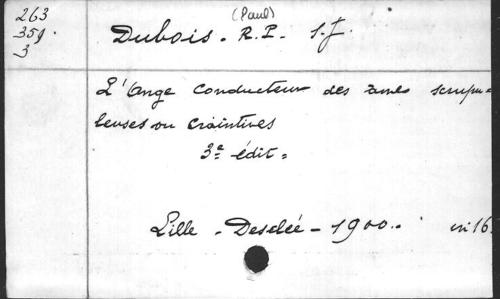 263
359.
3
(Paul)
Dubois. R.P. S.J.
L'Ange conducteur des âmes scrupu-
leuses ou craintives
3e édit.
Lille - Desclée - 1900.. in 16